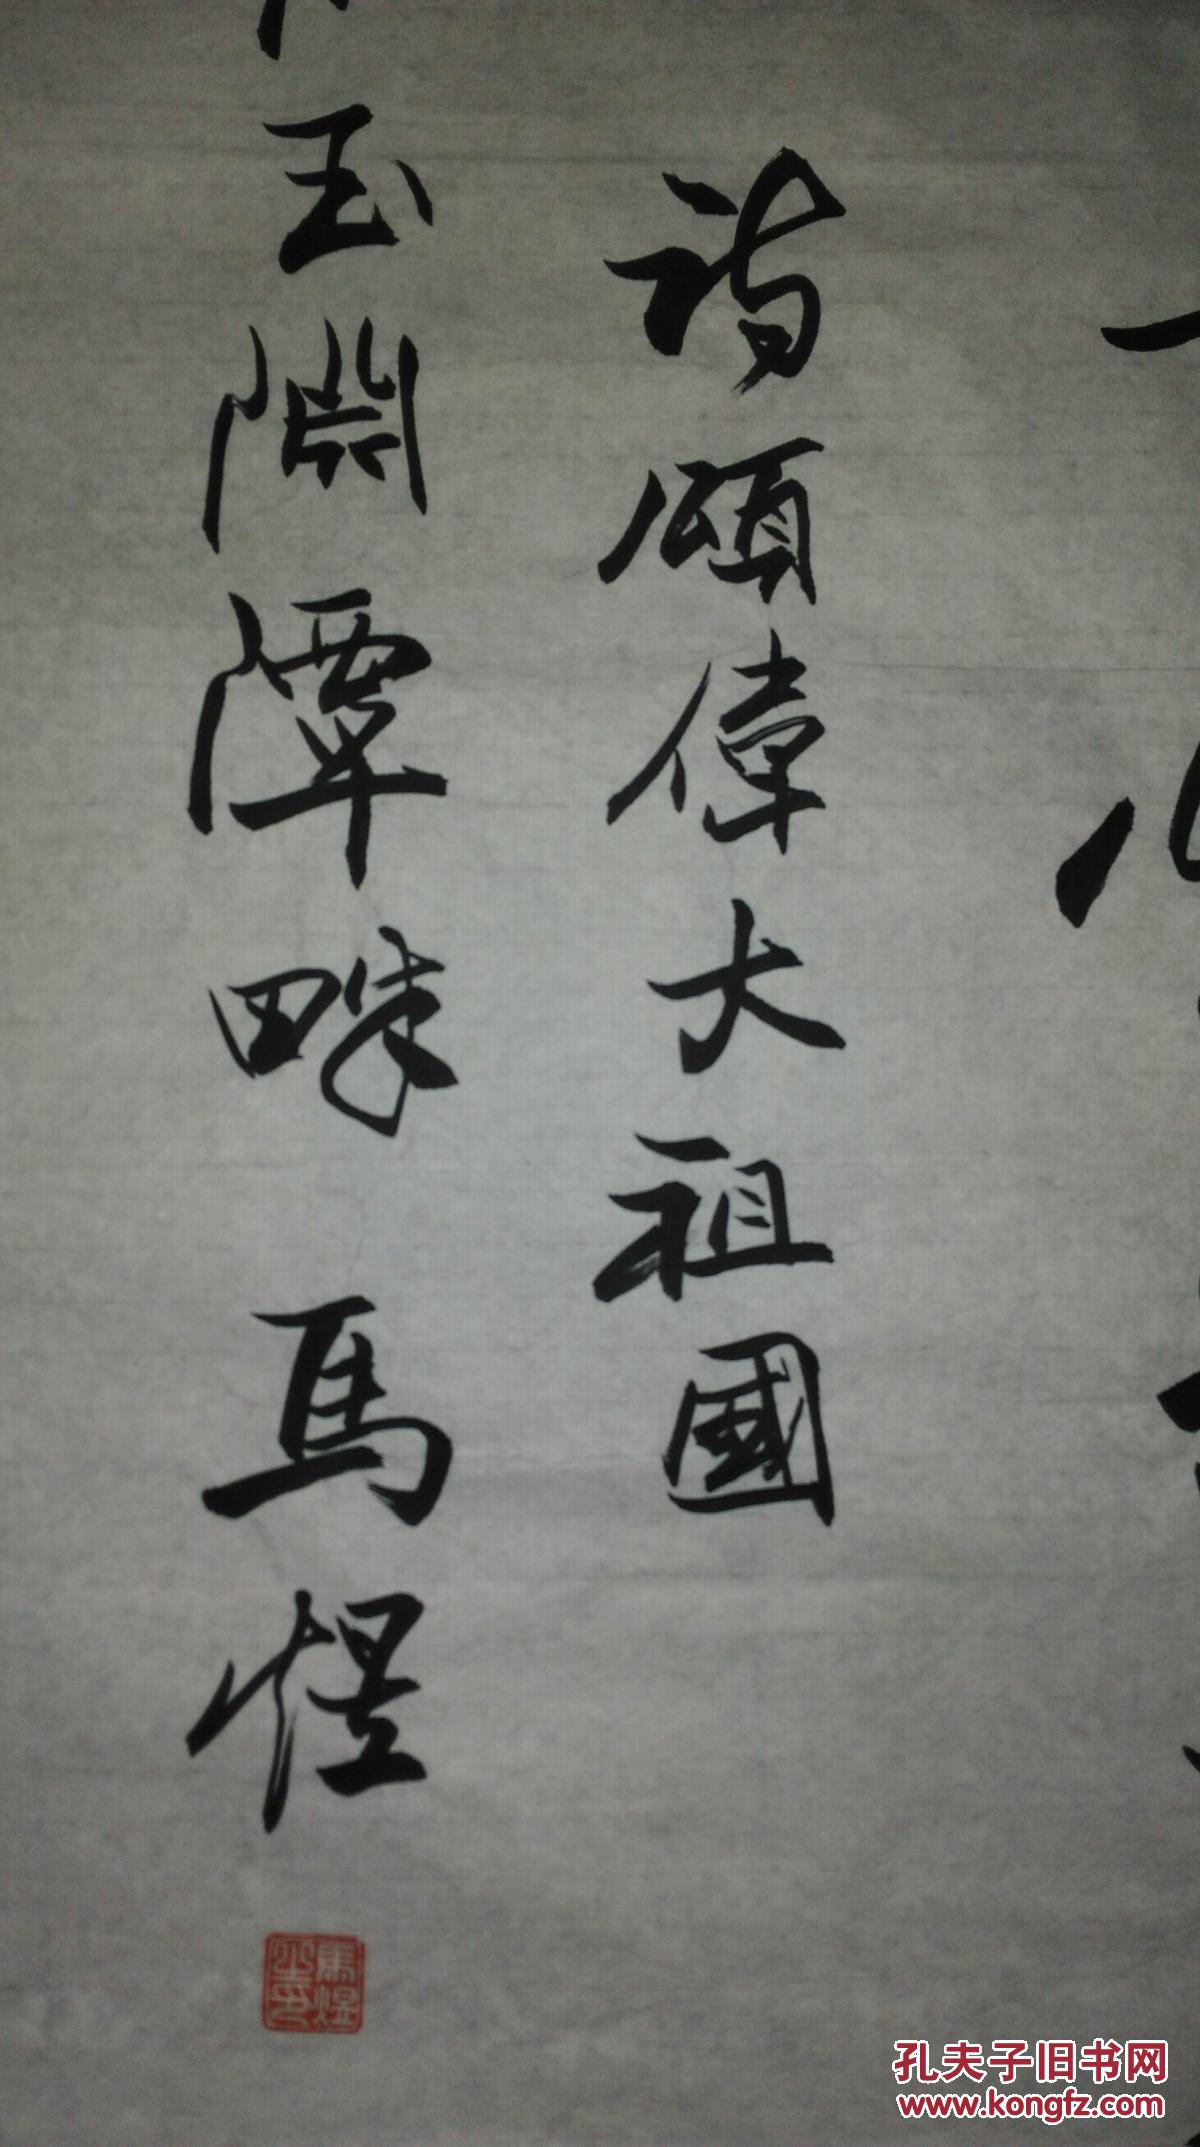 詩頌偉大祖國
玉淵潭畔 馬煜
孔夫子旧书网
www.kongfz.com